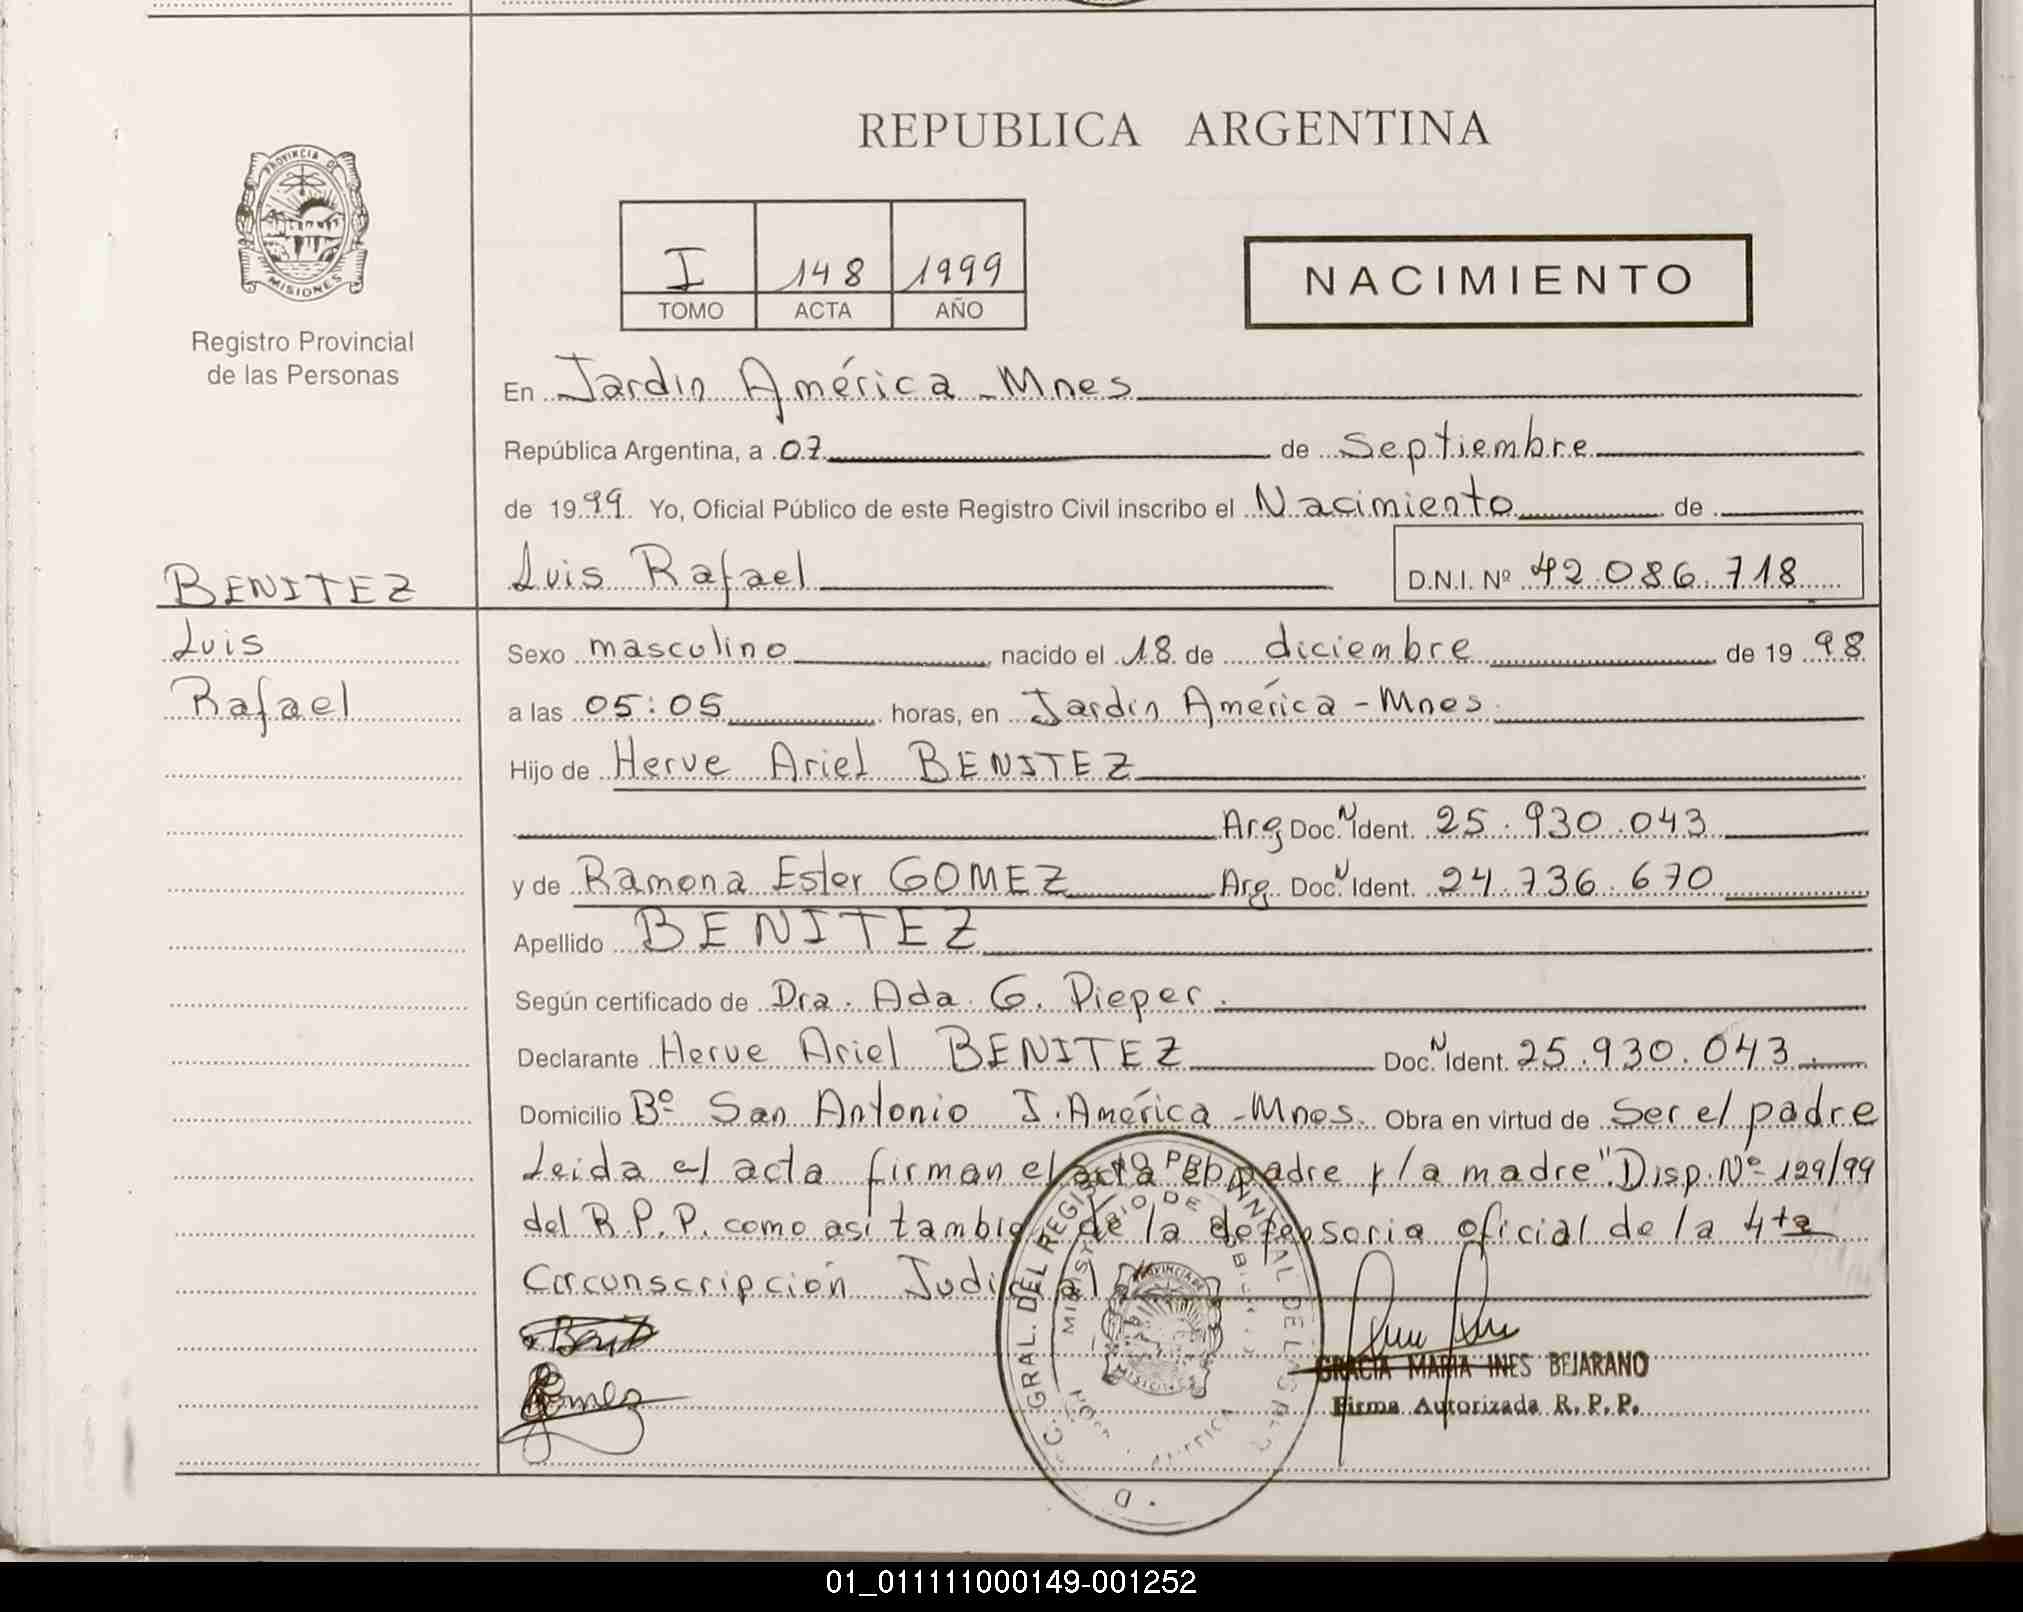 REPUBLICA ARGENTINA
PROVINCIA DE
MISIONES
Registro Provincial
de las Personas
I 148 1999
TOMO ACTA AÑO
NACIMIENTO
En Jardin América - Mnes
República Argentina, a 07 de Septiembre
de 1999 Yo, Oficial Público de este Registro Civil inscribo el Nacimiento de
Luis Rafael D.N.I. Nº 42.086.718
BENITEZ
Luis
Rafael
Sexo masculino nacido el 18 de diciembre de 1998
a las 05:05 horas, en Jardin América - Mnes
Hijo de Herve Ariel BENITEZ
Arg Doc. N Ident. 25.930.043
y de Ramona Ester GOMEZ Arg. Doc. N Ident. 24.736.670
Apellido BENITEZ
Según certificado de Dra. Ada G. Pieper.
Declarante Herve Ariel BENITEZ Doc. N Ident. 25.930.043
Domicilio Bº San Antonio J. América - Mnes. Obra en virtud de Ser el padre
Leida el acta firman el acta el padre y la madre "Disp. Nº 129/99
del R.P.P. como asi tambie de la defensoria oficial de la 4ta
Circunscripción Judicial
Gomez
GRACIA MARIA INES BEJARANO
Firma Autorizada R. P. P.
01_011111000149-001252